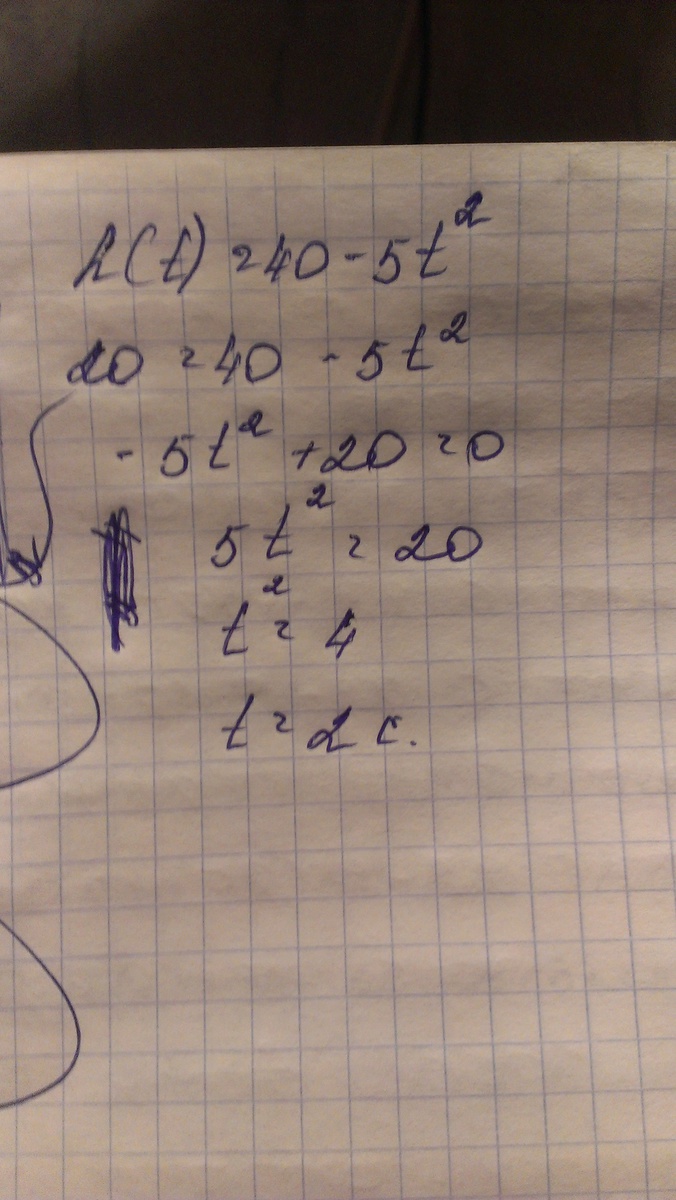 h(t) = 40 - 5t²
20 = 40 - 5t²
- 5t² + 20 = 0
5t² = 20
t² = 4
t = 2 с.